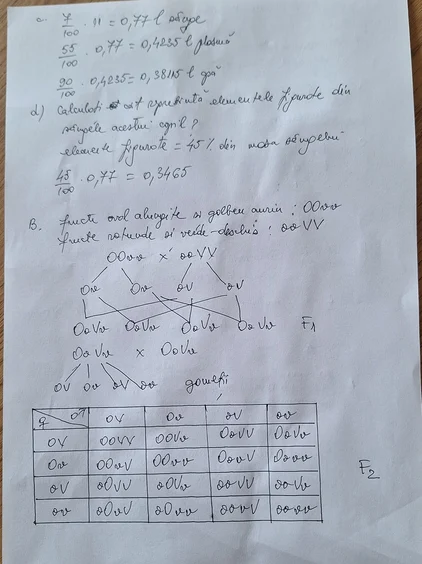 c. 7/100 · 11 = 0,77 l sânge
55/100 · 0,77 = 0,4235 l plasmă
90/100 · 0,4235 = 0,38115 l apă
d) Calculați cât reprezintă elementele figurate din
sângele acestui copil?
elemente figurate = 45% din masa sângelui
45/100 · 0,77 = 0,3465
B. fructe oval alungite și galben auriu : OOvv
fructe rotunde și verde-deschis : ooVV
OOvv x ooVV
Ov Ov oV oV
OoVv OoVv OoVv OoVv F1
OoVv x OoVv
OV Ov oV ov gameți
♀ ♂ OV Ov oV ov
OV OOVV OOVv OoVV OoVv
Ov OOvV OOvv OovV Oovv
oV oOVV oOVv ooVV ooVv
ov oOvV oOvv oovV oovv
F2